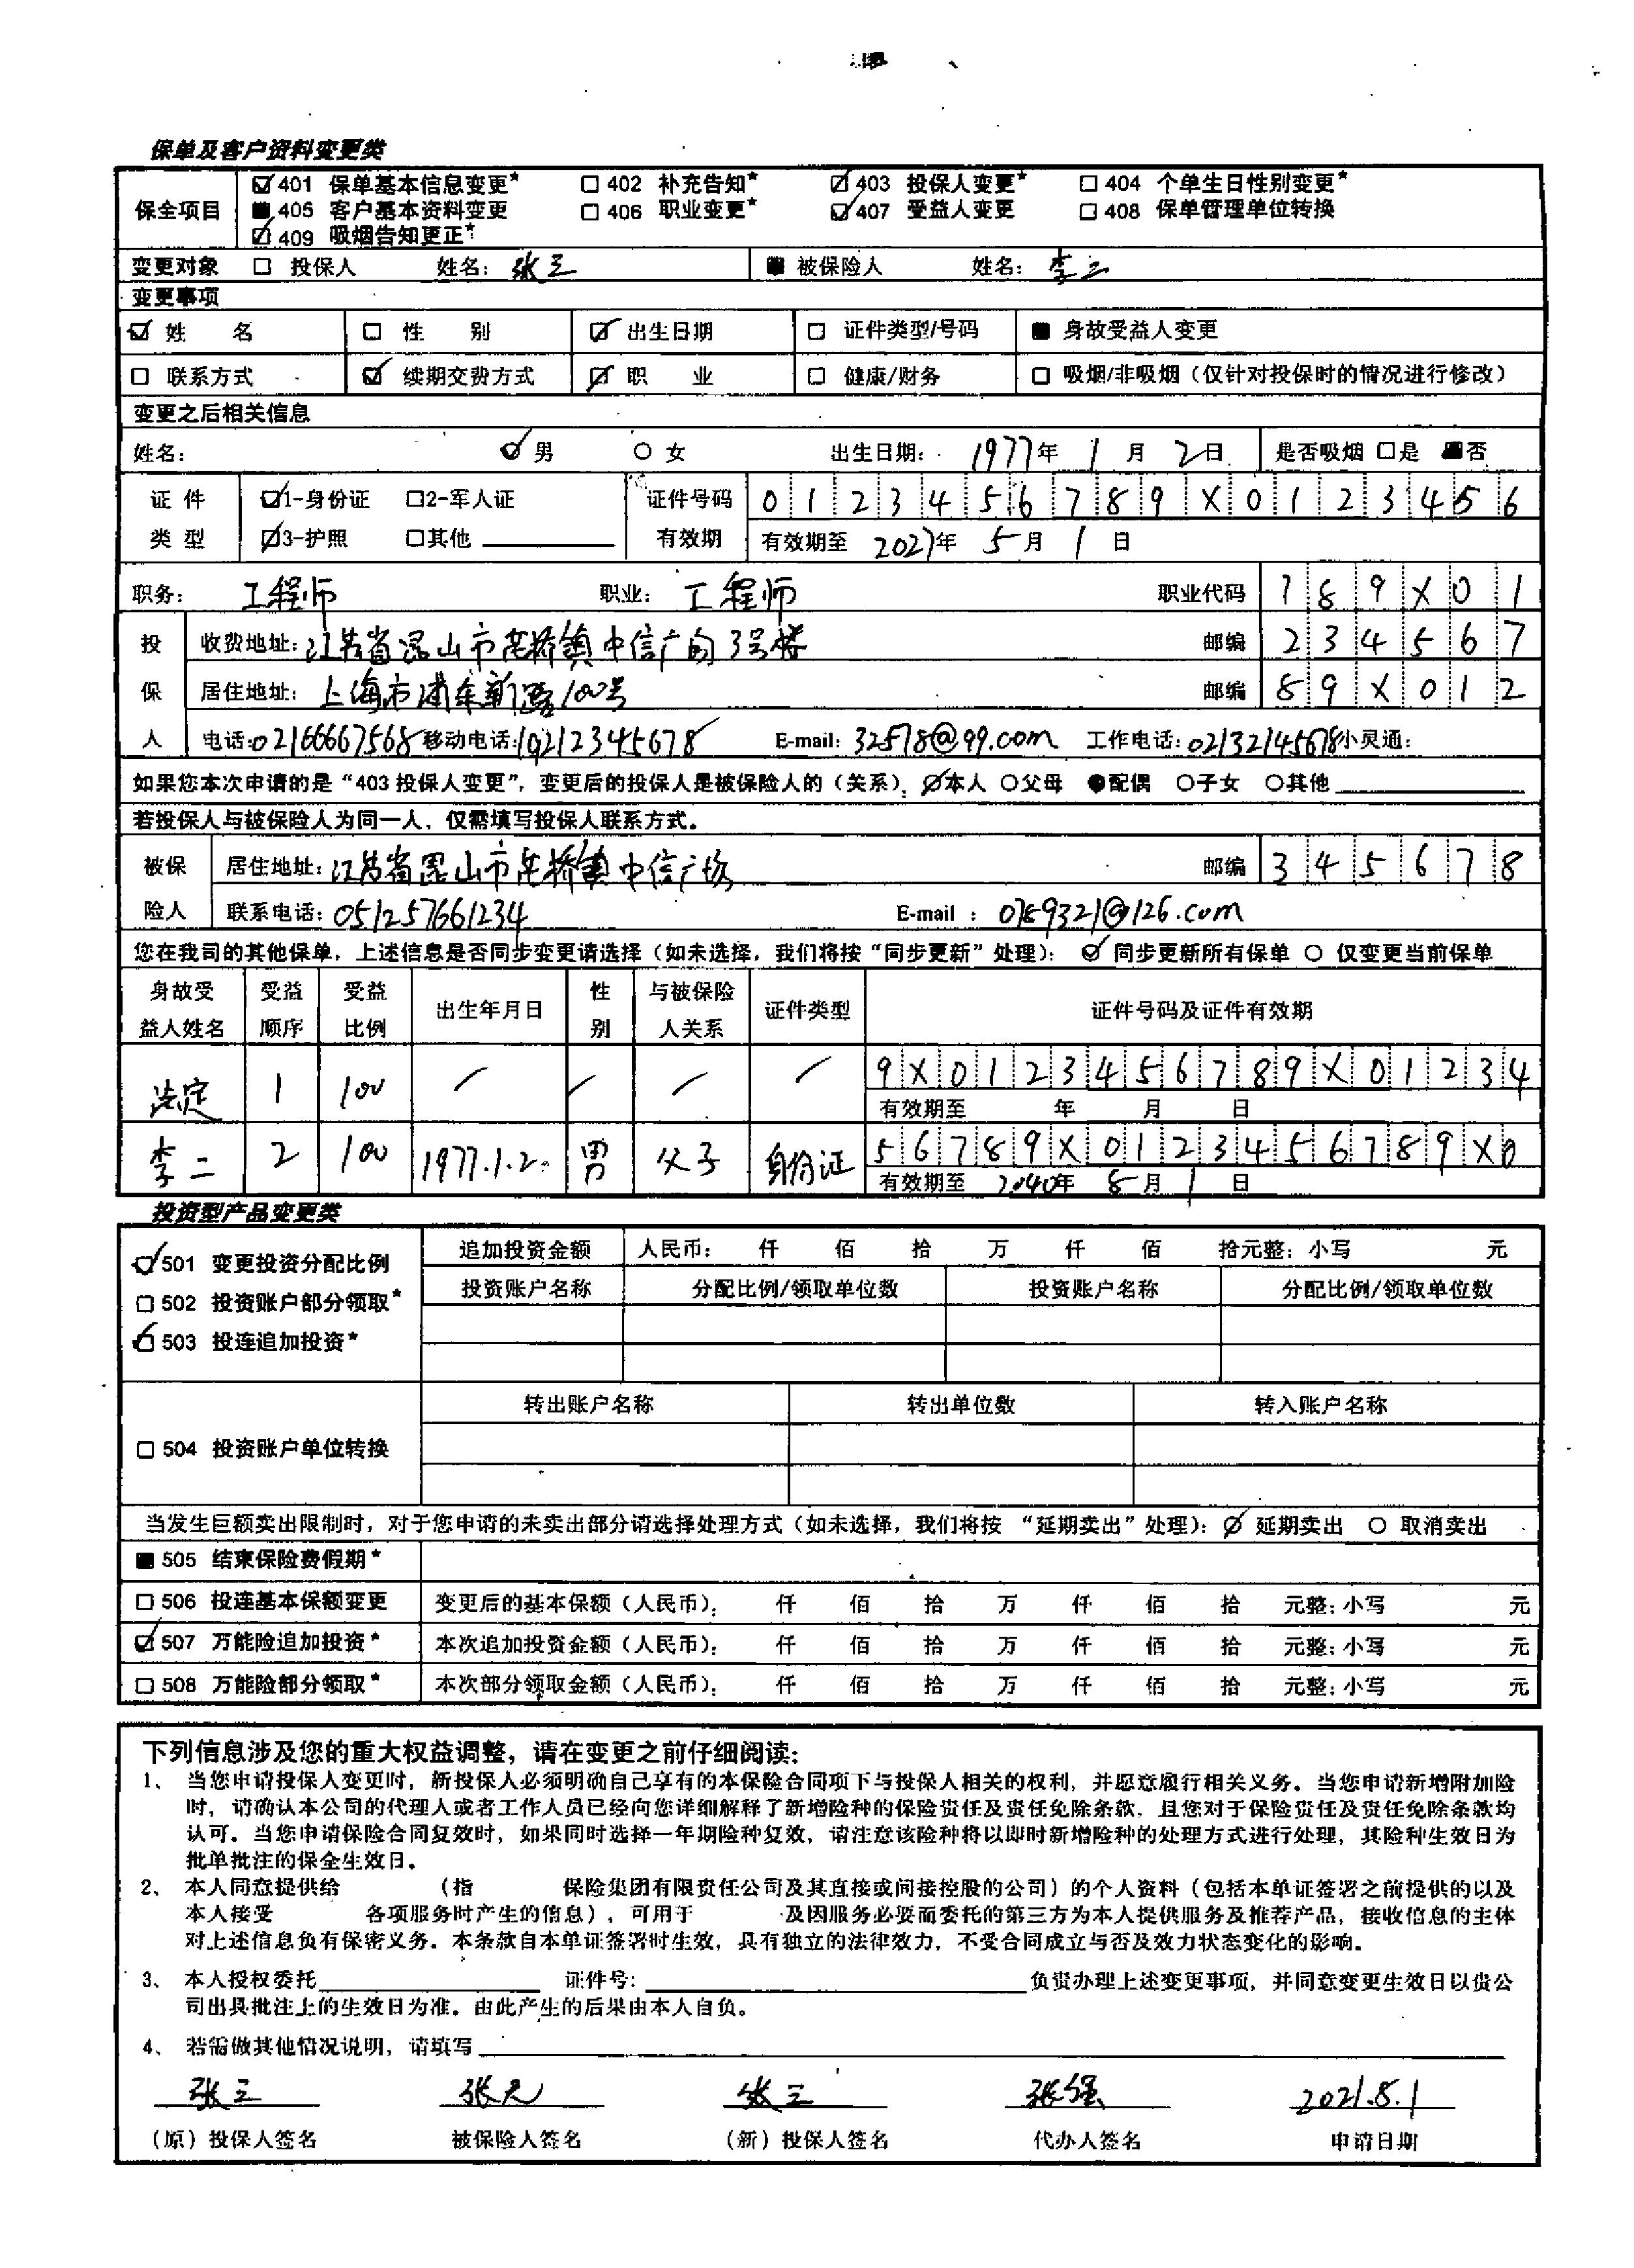 保单及客户资料变更类
保全项目 ☑401 保单基本信息变更* □402 补充告知* ☑403 投保人变更* □404 个单生日性别变更*
■405 客户基本资料变更 □406 职业变更* ☑407 受益人变更 □408 保单管理单位转换
☑409 吸烟告知更正*
变更对象 □ 投保人 姓名: 张三 ■ 被保险人 姓名: 李二
变更事项
☑ 姓 名 □ 性 别 ☑ 出生日期 □ 证件类型/号码 ■ 身故受益人变更
□ 联系方式 ☑ 续期交费方式 ☑ 职 业 □ 健康/财务 □ 吸烟/非吸烟(仅针对投保时的情况进行修改)
变更之后相关信息
姓名: ☑ 男 ○ 女 出生日期: 1977年 1 月 2日 是否吸烟 □是 ■否
证 件 ☑1-身份证 □2-军人证 证件号码 0123456789X0123456
类 型 ☑3-护照 □其他 有效期 有效期至 2027年 5月 1 日
职务: 工程师 职业: 工程师 职业代码 789X01
投 收费地址: 江苏省昆山市花桥镇中信广场3号楼 邮编 234567
保 居住地址: 上海市浦东新路100号 邮编 89X012
人 电话:02166667568 移动电话:19212345678 E-mail: 32578@99.com 工作电话:02132145678 小灵通:
如果您本次申请的是“403 投保人变更”,变更后的投保人是被保险人的(关系): ☑本人 ○父母 ●配偶 ○子女 ○其他
若投保人与被保险人为同一人,仅需填写投保人联系方式。
被保 居住地址: 江苏省昆山市花桥镇中信广场 邮编 345678
险人 联系电话: 051257661234 E-mail : 0789321@126.com
您在我司的其他保单,上述信息是否同步变更请选择(如未选择,我们将按“同步更新”处理): ☑ 同步更新所有保单 ○ 仅变更当前保单
身故受 受益 受益 出生年月日 性 与被保险 证件类型 证件号码及证件有效期
益人姓名 顺序 比例 别 人关系
法定 1 100 / / / / 9X0123456789X01234
有效期至 年 月 日
李二 2 100 1977.1.2. 男 父子 身份证 56789X0123456789X0
有效期至 2040年 8月 1 日
投资型产品变更类
☑501 变更投资分配比例 追加投资金额 人民币: 仟 佰 拾 万 仟 佰 拾元整: 小写 元
□502 投资账户部分领取* 投资账户名称 分配比例/领取单位数 投资账户名称 分配比例/领取单位数
☑503 投连追加投资*
转出账户名称 转出单位数 转入账户名称
□504 投资账户单位转换
当发生巨额卖出限制时,对于您申请的未卖出部分请选择处理方式(如未选择,我们将按 “延期卖出”处理): ☑ 延期卖出 ○ 取消卖出
■505 结束保险费假期*
□506 投连基本保额变更 变更后的基本保额(人民币): 仟 佰 拾 万 仟 佰 拾 元整: 小写 元
☑507 万能险追加投资* 本次追加投资金额(人民币): 仟 佰 拾 万 仟 佰 拾 元整: 小写 元
□508 万能险部分领取* 本次部分领取金额(人民币): 仟 佰 拾 万 仟 佰 拾 元整: 小写 元
下列信息涉及您的重大权益调整,请在变更之前仔细阅读:
1、 当您申请投保人变更时,新投保人必须明确自己享有的本保险合同项下与投保人相关的权利,并愿意履行相关义务。当您申请新增附加险
时,请确认本公司的代理人或者工作人员已经向您详细解释了新增险种的保险责任及责任免除条款,且您对于保险责任及责任免除条款均
认可。当您申请保险合同复效时,如果同时选择一年期险种复效,请注意该险种将以即时新增险种的处理方式进行处理,其险种生效日为
批单批注的保全生效日。
2、 本人同意提供给 (指 保险集团有限责任公司及其直接或间接控股的公司)的个人资料(包括本单证签署之前提供的以及
本人接受 各项服务时产生的信息),可用于 及因服务必要而委托的第三方为本人提供服务及推荐产品,接收信息的主体
对上述信息负有保密义务。本条款自本单证签署时生效,具有独立的法律效力,不受合同成立与否及效力状态变化的影响。
3、 本人授权委托 证件号: 负责办理上述变更事项,并同意变更生效日以贵公
司出具批注上的生效日为准。由此产生的后果由本人自负。
4、 若需做其他情况说明,请填写
张三 张元 张三 张强 2021.8.1
(原)投保人签名 被保险人签名 (新)投保人签名 代办人签名 申请日期